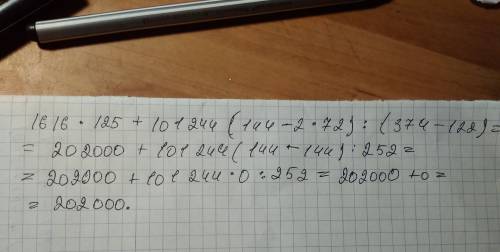 1616 · 125 + 101244 (144 - 2 · 72) : (374 - 122) =
= 202000 + 101244 (144 - 144) : 252 =
= 202000 + 101244 · 0 : 252 = 202000 + 0 =
= 202000.